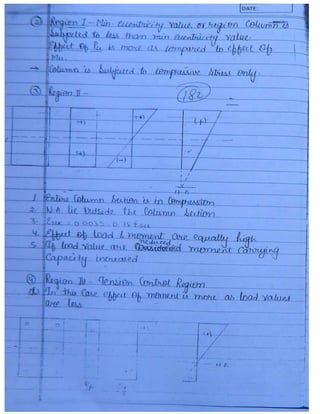 DATE:
② Region I - Min. Eccentricity value or region Column is
Subjected to less than min eccentricity value
Effect of Pu is more as compared to effect of
Mu.
→ Column is Subjected to compressive stress only.
③ Region II -
182
(+) (+) (+)
(+) (-)
N-A
1. Entire Column Section is in Compression
2. N-A lie outside the Column section.
3. = 0.0035 - 0.75
4. Effect of load & moment are equally high
5. If load value are reduced moment carrying
Capacity increased
④ Region III - Tension Control Region
In this Case effect of moment is more as load values
are less
(+)
N-A